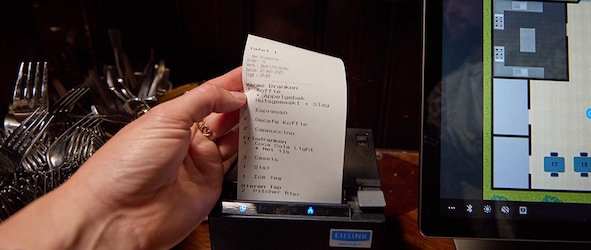 Tafel 1
Warme Dranken
Koffie
+ Appelgebak
Huisgemaakt + Slag
Espresso
2 Decafe Koffie
2 Cappuccino
Frisdranken
Coca Cola Light
* Met Ijs
3 Cassis
1 Sisi
1 Ice Tea
Bieren Tap
2 Pitcher Bier
ELISINK
17
18